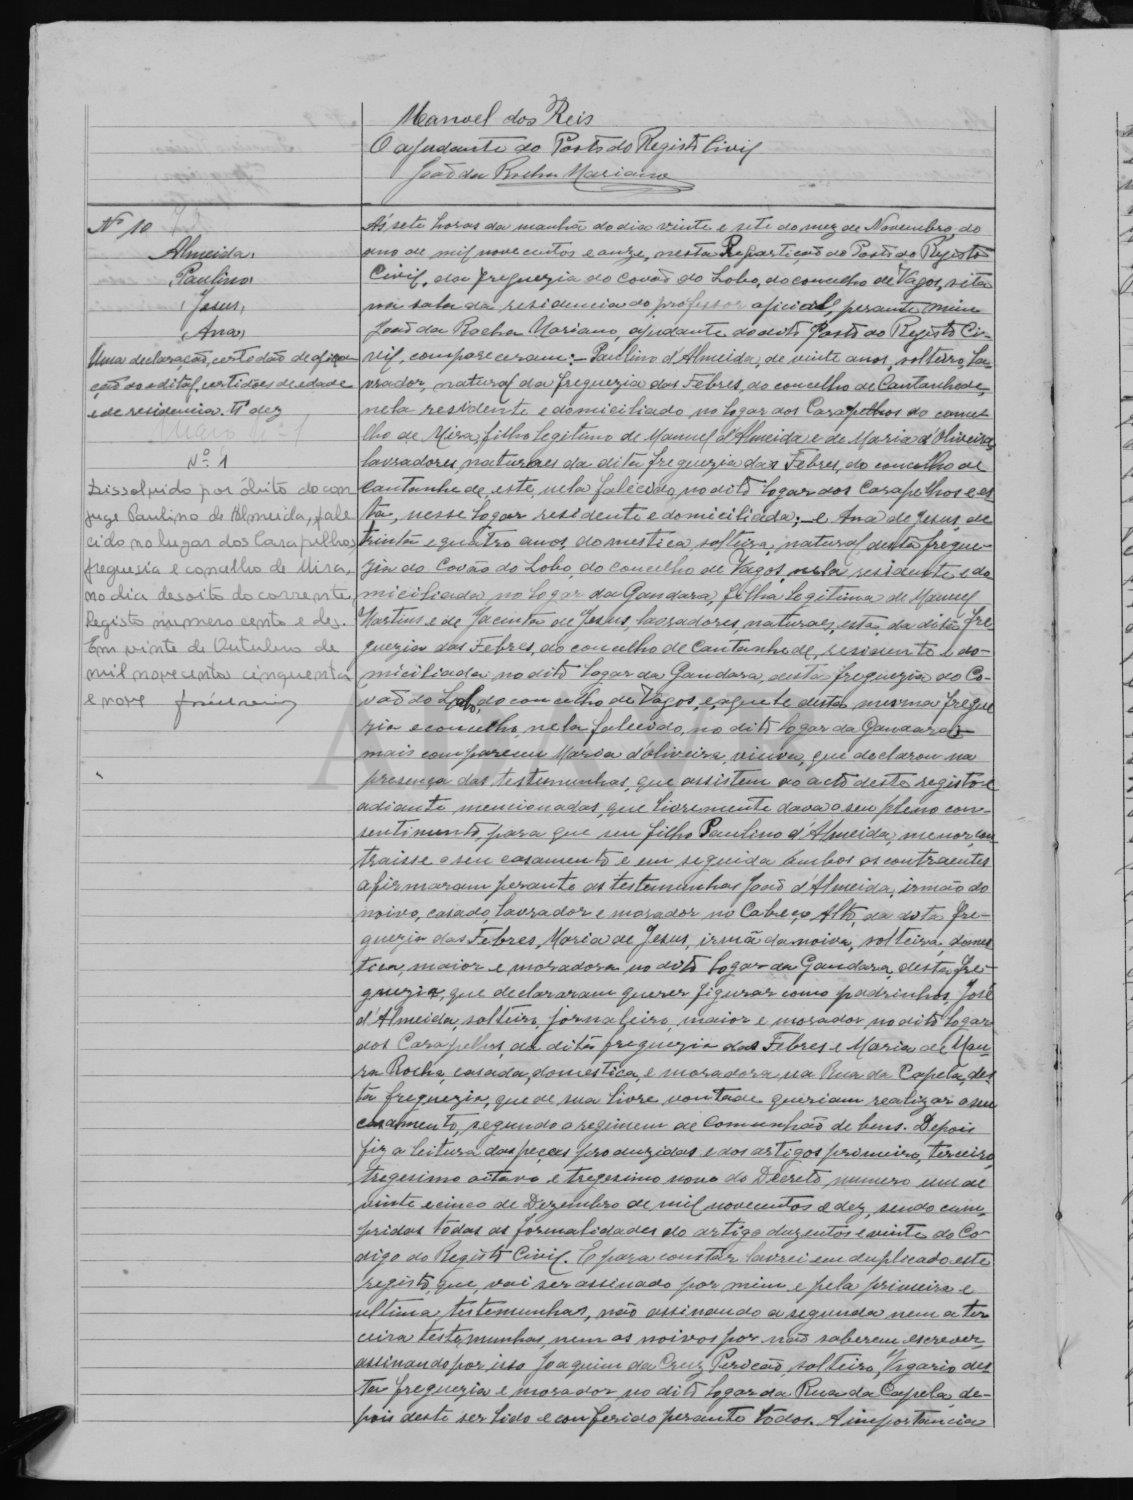 Manoel dos Reis
O ajudante do Posto do Registo Civil
João da Rocha Mariano
Nº 10
Almeida,
Paulino
Jesus,
Ana,
Uma declaração, certidão de afixa-
ção do edital, certidões de edade
e de residencia. Nº dez
Nº 1
Dissolvido por óbito do con
juge Paulino de Almeida, fale
cido no lugar dos Carapelhos
freguesia e concelho de Mira,
no dia desoito do corrente.
Registo numero cento e dez.
Em vinte de Outubro de
mil novecentos cinquenta
e nove
Ás sete horas da manhã do dia vinte e sete do mez de Novembro, do
ano de mil novecentos e onze, nesta Repartição do Posto do Registo
Civil, da freguezia do Covão do Lobo, do concelho de Vagos, sita
na sala da residencia do professor oficial, perante mim
João da Rocha Mariano, ajudante do dito Posto do Registo Ci-
vil, compareceram:– Paulino d'Almeida, de vinte anos, solteiro, la-
vrador, natural da freguezia das Febres, do concelho de Cantanhede,
nela residente e domiciliado no logar dos Carapelhos do conce-
lho de Mira, filho legitimo de Manuel d'Almeida e de Maria d'Oliveira,
lavradores, naturaes da dita freguezia das Febres, do concelho de
Cantanhede, este, nela falecido, no dito logar dos Carapelhos e es
ta, nesse logar residente e domiciliada;– e Ana de Jesus, de
trinta e quatro anos, domestica, solteira, natural desta fregue-
zia do Covão do Lobo, do concelho de Vagos, nela residente e do
miciliada no logar da Gandara, filha legitima de Manuel
Martins e de Jacinta de Jesus, lavradores, naturaes, esta, da dita fre-
guezia das Febres, do concelho de Cantanhede, residente e do-
miciliada no dito logar da Gandara, desta freguezia do Co-
vão do Lobo, do concelho de Vagos, e aquele desta mesma fregue
zia e concelho, nela falecido, no dito logar da Gandara;–
mais compareceu Maria d'Oliveira, viuva, que declarou na
presença das testemunhas, que assistem ao acto deste registo e
adiante mencionadas, que livremente dava o seu pleno con-
sentimento, para que seu filho Paulino d'Almeida, menor, con
traisse o seu casamento e em seguida ambos os contraentes
afirmaram perante as testemunhas João d'Almeida, irmão do
noivo, casado, lavrador e morador no Cabeço Alto, da dita fre-
guezia das Febres, Maria de Jesus, irmã da noiva, solteira, domes
tica, maior e moradora no dito logar da Gandara, desta fre-
guezia, que declararam querer figurar como padrinhos, José
d'Almeida, solteiro, jornaleiro, maior e morador no dito logar
dos Carapelhos, da dita freguezia das Febres e Maria de Mou-
ra Rocha, casada, domestica, e moradora na Rua da Capela, des-
ta freguezia, que de sua livre vontade queriam realizar o seu
casamento, segundo o regimem de comunhão de bens. Depois
fiz a leitura das peças produzidas e dos artigos primeiro, terceiro,
tregesimo oitavo e tregesimo nono do Decreto numero um de
vinte e cinco de Dezembro de mil novecentos e dez, sendo cum-
pridas todas as formalidades do artigo duzentos e vinte do Co-
digo do Registo Civil. E para constar lavrei em duplicado este
registo, que vai ser assinado por mim e pela primeira e
ultima testemunhas, não assinando a segunda nem a ter
ceira testemunhas, nem os noivos por não saberem escrever,
assinando por isso Joaquim da Cruz Pericão, solteiro, Vigario des
ta freguezia e morador no dito logar da Rua da Capela, de-
pois deste ser lido e conferido perante todos. A importancia